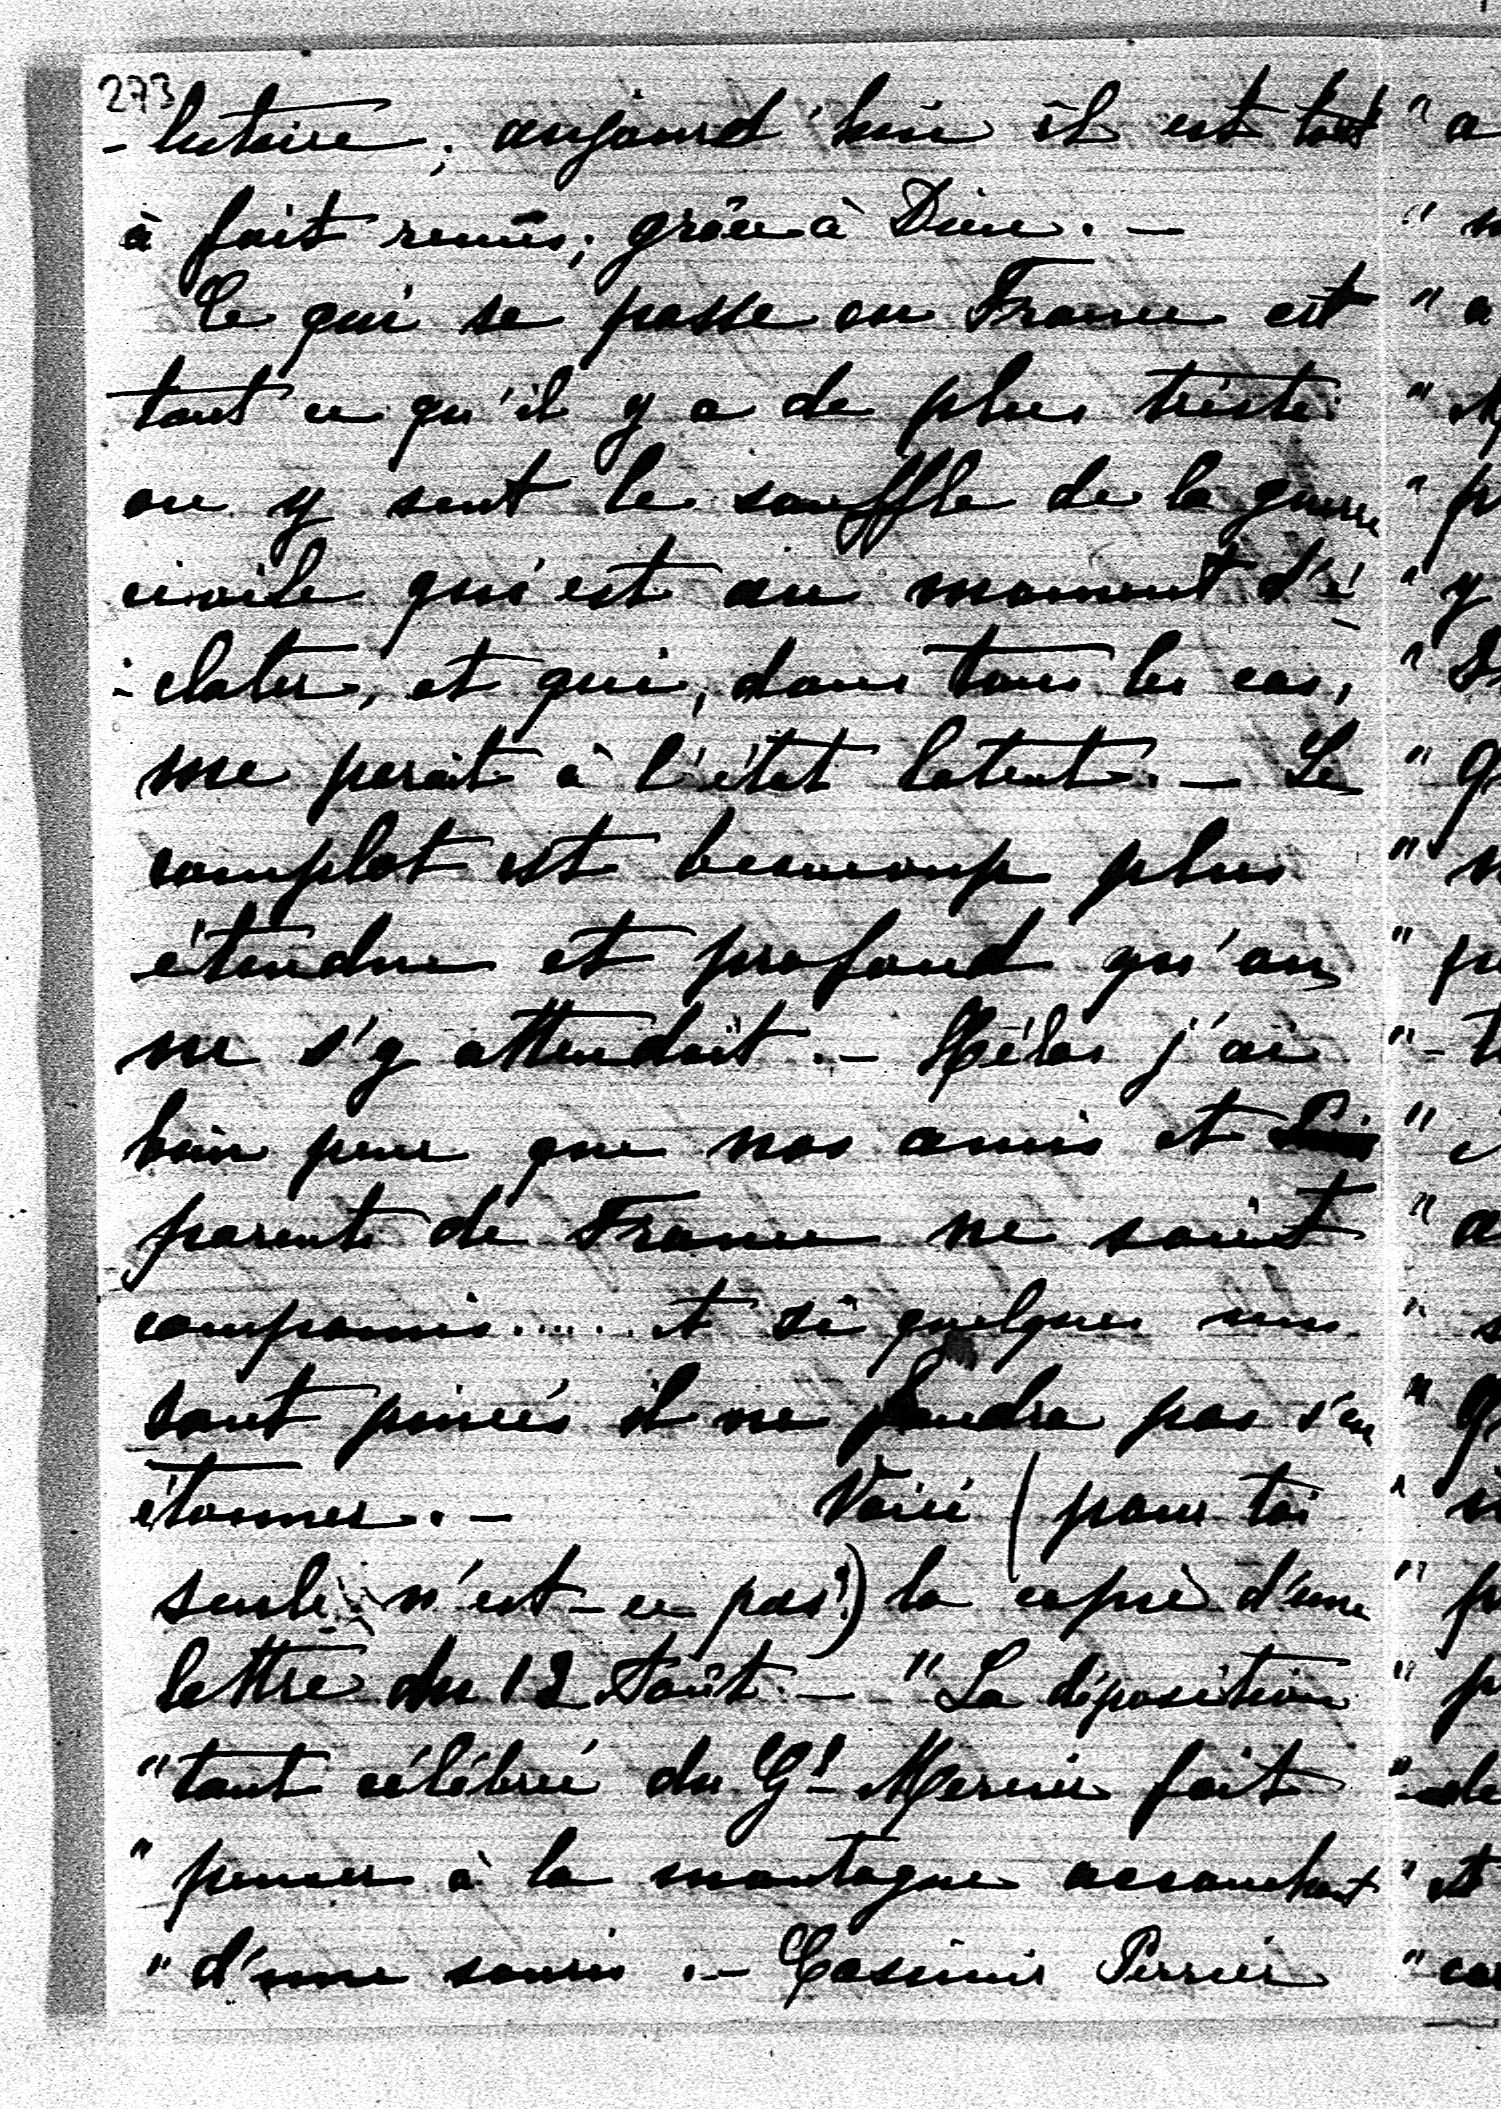 273
-lutaire ; aujourd'hui il est tout
à fait remis, grâce à Dieu. —
Ce qui se passe en France est
tout ce qu'il y a de plus triste :
on y sent le souffle de la guerre
civile qui est au moment d'é-
-clater, et qui, dans tous les cas,
me paraît à l'état latent. — Le
complot est beaucoup plus
étendu et profond qu'on
ne s'y attendait. — Hélas j'ai
bien peur que nos amis et
parents de France ne soient
compromis ...... et si quelques uns
sont pincés il ne faudra pas s'en
étonner. — Voici (pour toi
seule, n'est-ce pas?) la copie d'une
lettre du 12 Août. — "La déposition
"tant célébrée du Gl Mercier fait
"penser à la montagne accouchant
"d'une souris. — Casimir Perrier